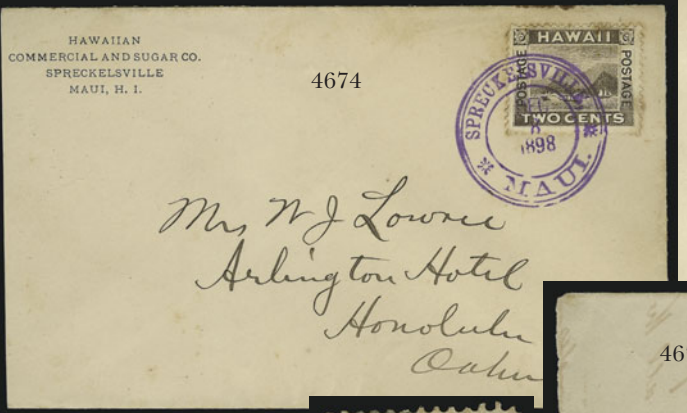 HAWAIIAN
COMMERCIAL AND SUGAR CO.
SPRECKELSVILLE
MAUI, H. I.
4674
HAWAII
POSTAGE
POSTAGE
TWO CENTS
SPRECKELSVILLE
8
1898
MAUI.
Mrs W J Lowrie
Arlington Hotel
Honolulu
Oahu
46